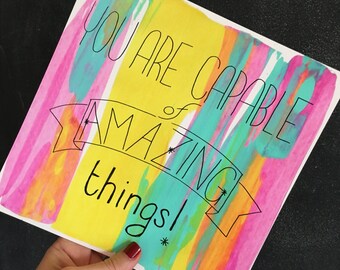 YOU ARE CAPABLE
of
AMAZING
things!